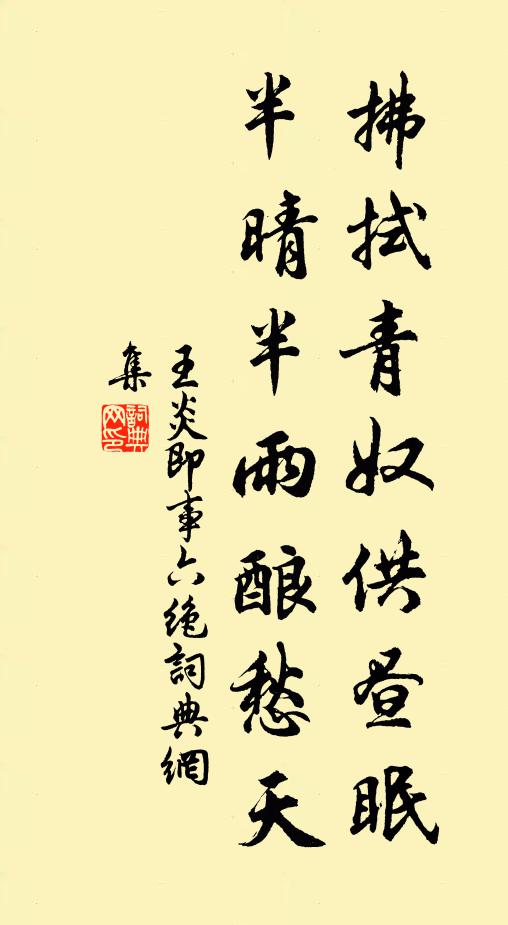 拂拭青奴供昼眠
半晴半雨酿愁天
王炎即事六绝詞典網
集
詞典
网印